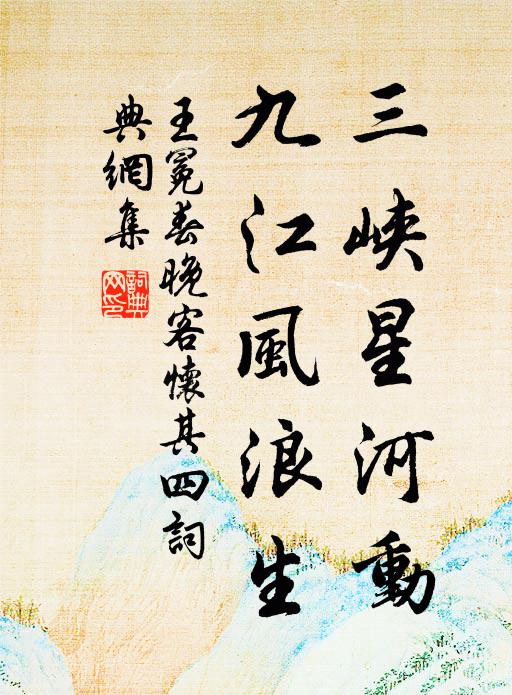 三峽星河動
九江風浪生
王冕春晚客懷其四詞
典網集
詞典網印